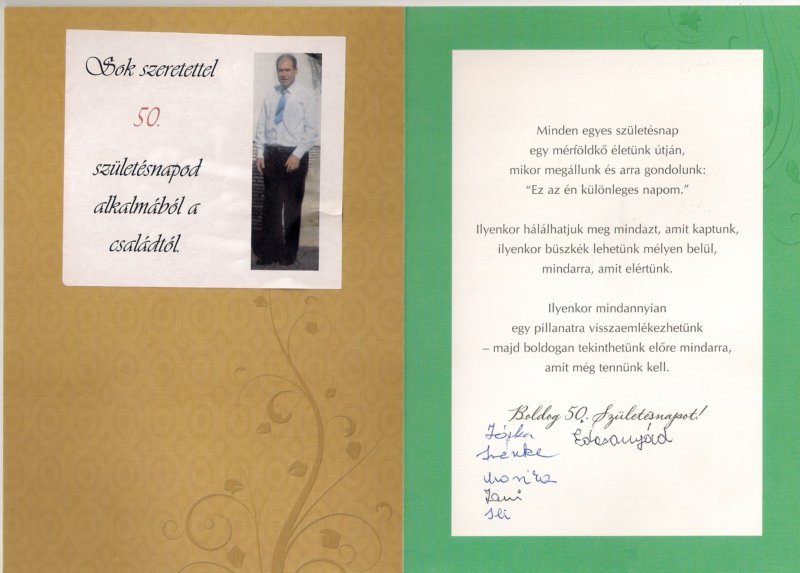 Sok szeretettel
50.
születésnapod
alkalmából a
családtól.
Minden egyes születésnap
egy mérföldkő életünk útján,
mikor megállunk és arra gondolunk:
“Ez az én különleges napom.”
Ilyenkor hálálhatjuk meg mindazt, amit kaptunk,
ilyenkor büszkék lehetünk mélyen belül,
mindarra, amit elértünk.
Ilyenkor mindannyian
egy pillanatra visszaemlékezhetünk
– majd boldogan tekinthetünk előre mindarra,
amit még tennünk kell.
Boldog 50. Születésnapot!
Édesanyád
Jani